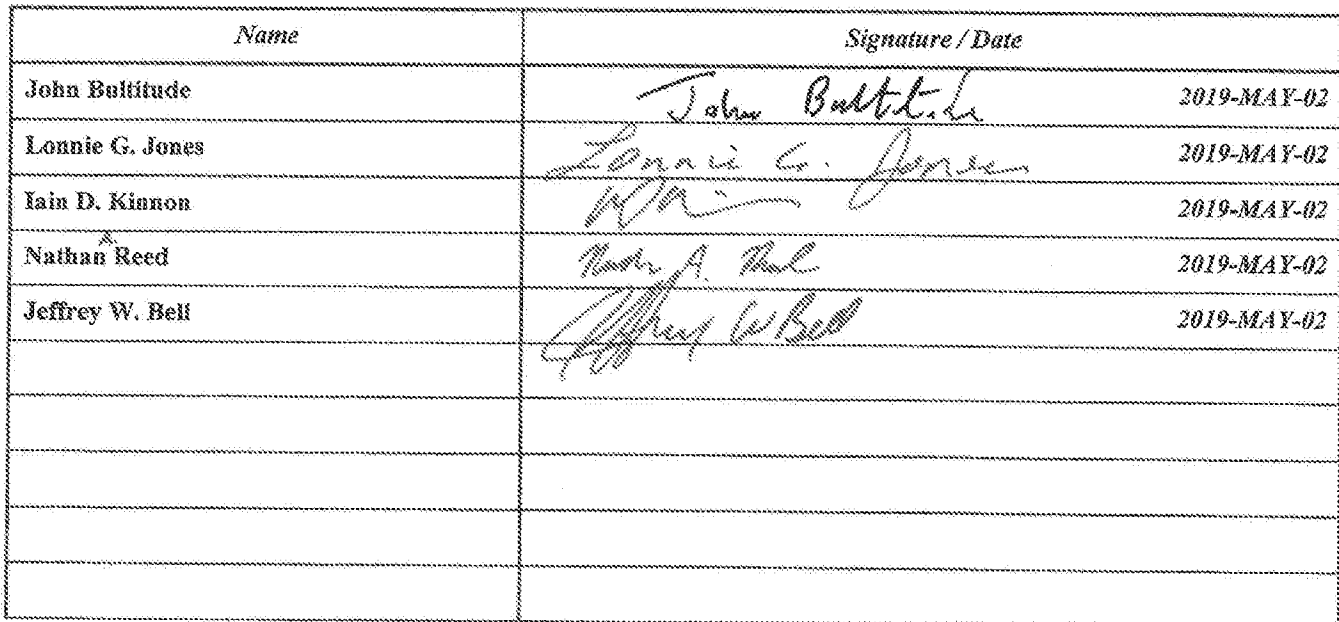 Name Signature / Date
John Bultitude John Bultitude 2019-MAY-02
Lonnie G. Jones Lonnie G. Jones 2019-MAY-02
Iain D. Kinnon 2019-MAY-02
A.
Nathan Reed 2019-MAY-02
Jeffrey W. Bell Jeffrey W Bell 2019-MAY-02